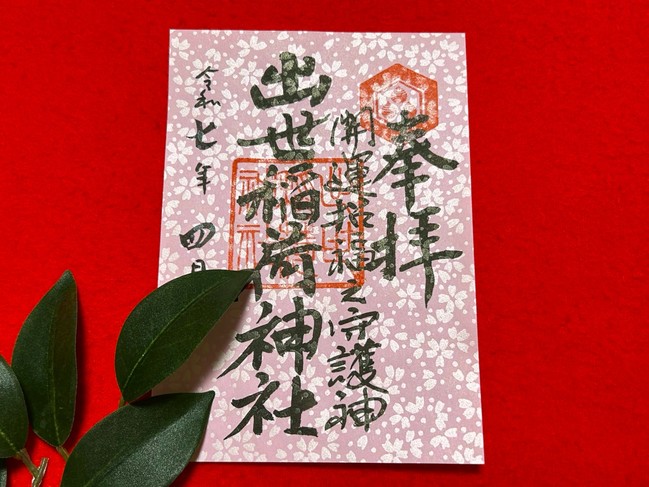 奉拝
開運招福之守護神
出世稲荷神社
令和七年 四月